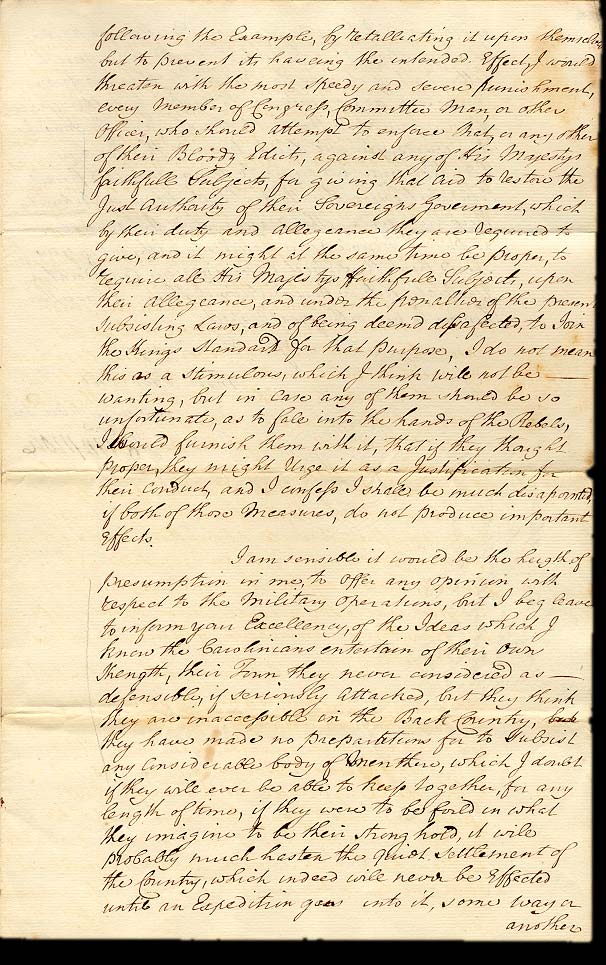 following the Example, by retalliating it upon themselves
but to prevent its haveing the intended Effect, I would
threaten with the most speedy and severe punishment,
every Member of Congress, Committee Man, or other
Officer, who should attempt to enforce that, or any other
of their Bloody Edicts, against any of His Majestys
faithfull Subjects, for giving that aid to restore the
Just Authority of their Sovereigns Goverment, which
by their duty and allegeance they are required to
give, and it might at the same time be proper, to
require all His Majestys faithfull Subjects, upon
their allegeance, and under the penalties of the present
Subsisting Laws, and of being deemd disafected, to Join
the Kings Standard for that purpose, I do not mean
this as a stimulous, which I think will not be —
wanting, but in case any of them should be so
unfortunate, as to fale into the hands of the Rebels,
I would furnish them with it, that if they thought
proper, they might Urge it as a Justification for
their Conduct, and I confess I shall be much disapointed,
if both of those Measures, do not produce important
Effects.
I am sensible it would be the heigth of
presumption in me, to offer any opinion with
respect to the Military Operations, but I beg leave
to inform your Excellency, of the Ideas which I
know the Carolinians entertain of their own
Strength, their Town they never considered as —
defensible, if seriously Attached, but they think
they are inaccessible in the Back Country,
they have made no prepartitions for to Subsist
any Considerable body of Men there, which I doubt
if they will ever be able to keep together, for any
length of time, if they were to be foild in what
they imagine to be their strong hold, it will
probably much hasten the quiet Settlement of
the Country, which indeed will never be Effected
until an Expedition goes into it, some way or
another